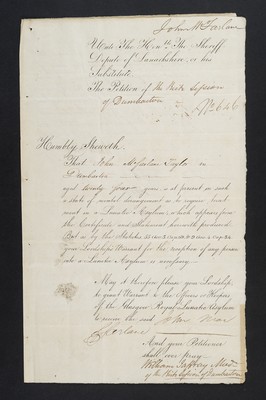 John McFarlan
Unto The Honble The Sheriff
Depute of Lanarkshire or his
Substitute.
The Petition of the Kirk Session
of Dumbarton
No 646
Humbly Sheweth
That John McFarlan Taylor in
Dumbarton
aged twenty years, is at present in such
a state of mental derangement as to require treat
ment in a Lunatic Asylum, which appears from
the Certificate and Statement herewith produced
But as by the Statutes
your Lordships Warrant for the reception of any person
into a Lunatic Asylum is necessary.
May it therefore please your Lordship
to grant Warrant to the Officers or Keepers
of the Glasgow Royal Lunatic Asylum
to receive the said John Mac
Farlane
And your Petitioner
shall ever pray
William Jaffray Modr
of the Kirk Session of Dumbarton